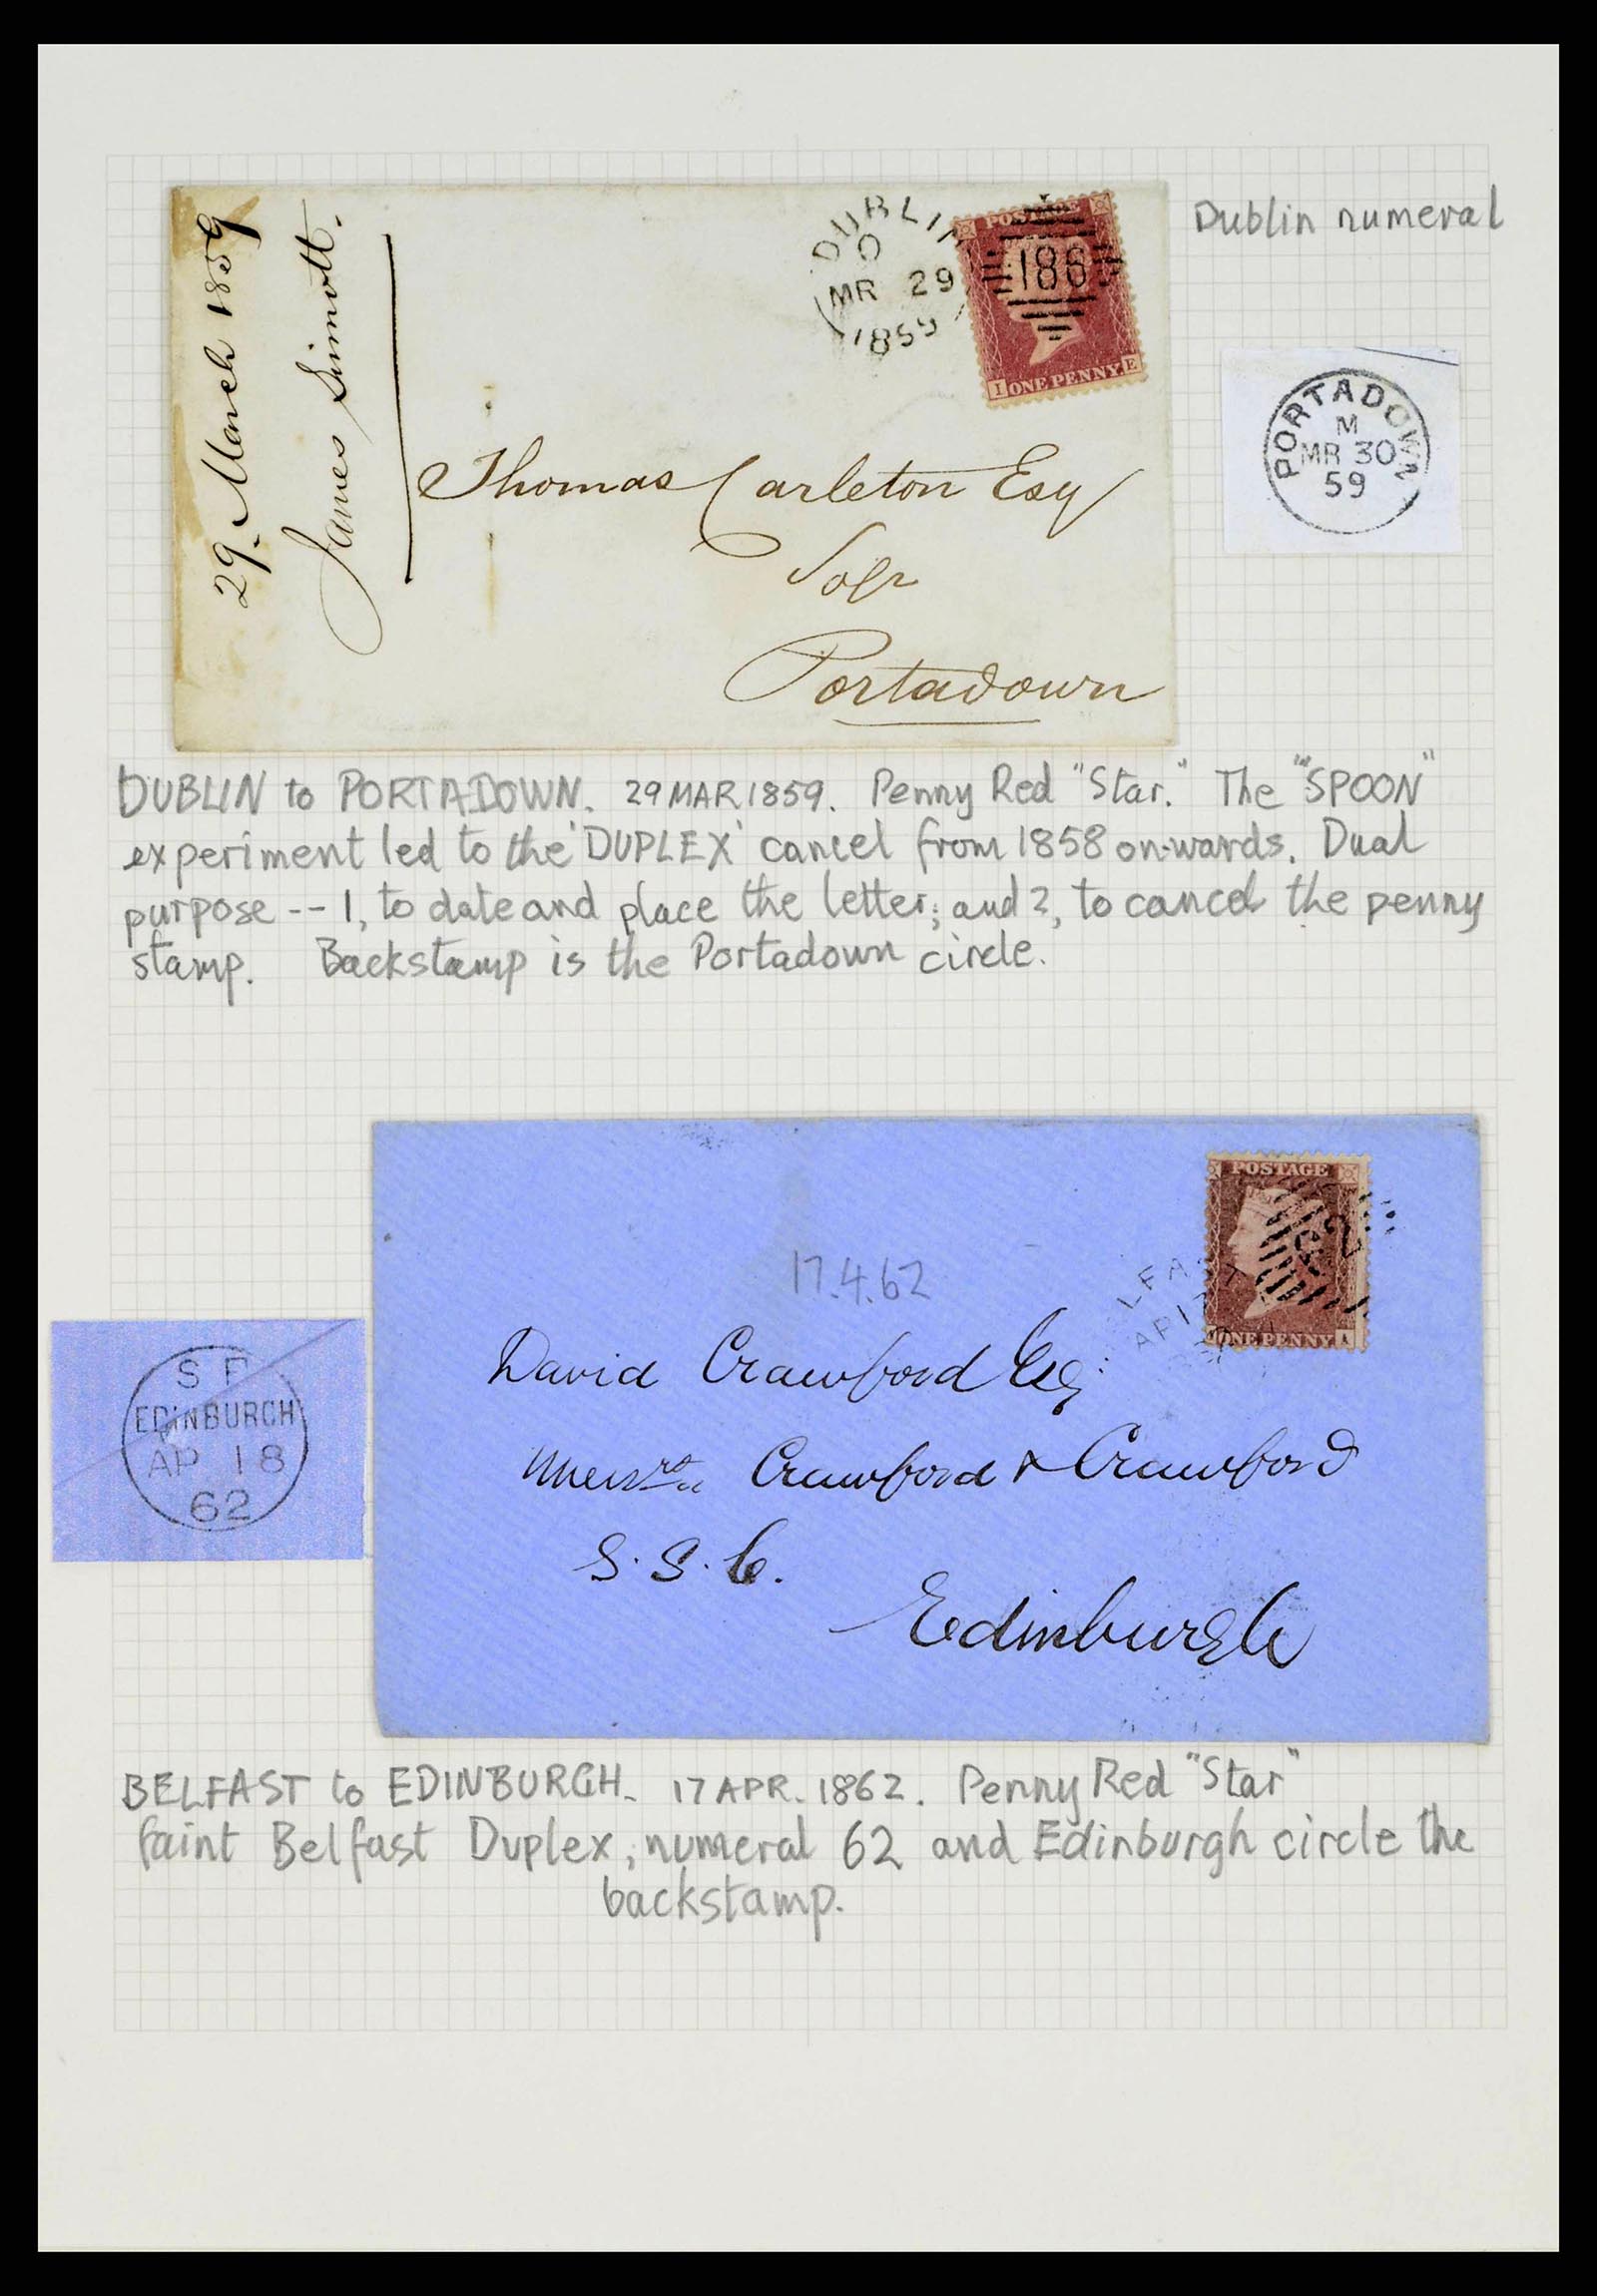 29. March 1859
James Sinnott.
DUBLIN
O
MR 29
1859
POSTAGE
186
I ONE PENNY. E
Dublin numeral
PORTADOWN
M
MR 30
59
Thomas Carleton Esq
Solr
Portadown
DUBLIN to PORTADOWN. 29 MAR 1859. Penny Red "Star." The "SPOON"
experiment led to the 'DUPLEX' cancel from 1858 on-wards. Dual
purpose -- 1, to date and place the letter; and 2, to cancel the penny
stamp. Backstamp is the Portadown circle.
POSTAGE
62
ONE PENNY A
LFAST
AP 17
17.4.62
David Crawford Esq:
Messrs Crawford & Crawford
S.S.C.
Edinburgh
S F
EDINBURGH
AP 18
62
BELFAST to EDINBURGH. 17 APR. 1862. Penny Red "Star"
faint Belfast Duplex, numeral 62 and Edinburgh circle the
backstamp.